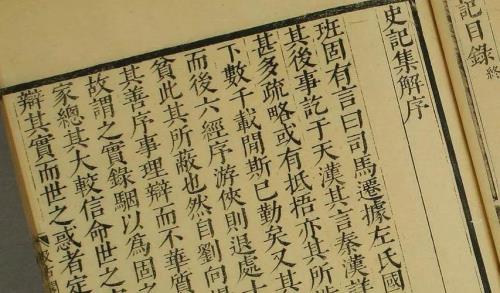 記目錄終
史記集解序
班固有言曰司馬遷據左氏國
其後事訖于天漢其言秦漢詳
甚多疏略或有抵捂亦其所
下數千載閒斯巳勤矣又其
而後六經序游俠則退處士
貧此其所蔽也然自劉向
其善序事理辯而不華質
故謂之實錄駰以爲固之
家總其大較信命世之
辯其實而世之惑者定